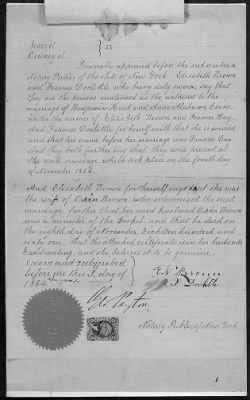 State of
County of } SS
Personally appeared before the subscriber a
Notary Public of the state of New York Elizabeth Brown
and Frances Doolittle who being duly sworn, say that
they are the persons mentioned as the witnesses to the
marriage of Benjamin Hand and Anna Alabama Crane
under the names of Elizabeth Brown and Frances Day,
And Frances Doolittle for herself saith that she is married
and that her name before her marriage was Frances Day.
And they both further say that they were present at
the said marriage which took place on the fourth day
of November 1852.
And Elizabeth Brown for herself says that she was
the wife of Oren Brown who solemnized the said
marriage, further that her said husband Oren Brown
was a minister of the Gospel and that he died on
the eighth day of November Eighteen hundred and
sixty one, that the attached certificate is in her husbands
handwriting, and she believes it to be genuine.
Sworn and subscribed
before me this 3 day of
August
186
E. N. Brown
F. Doolittle
Geo. Peyton
Notary Public of New York.